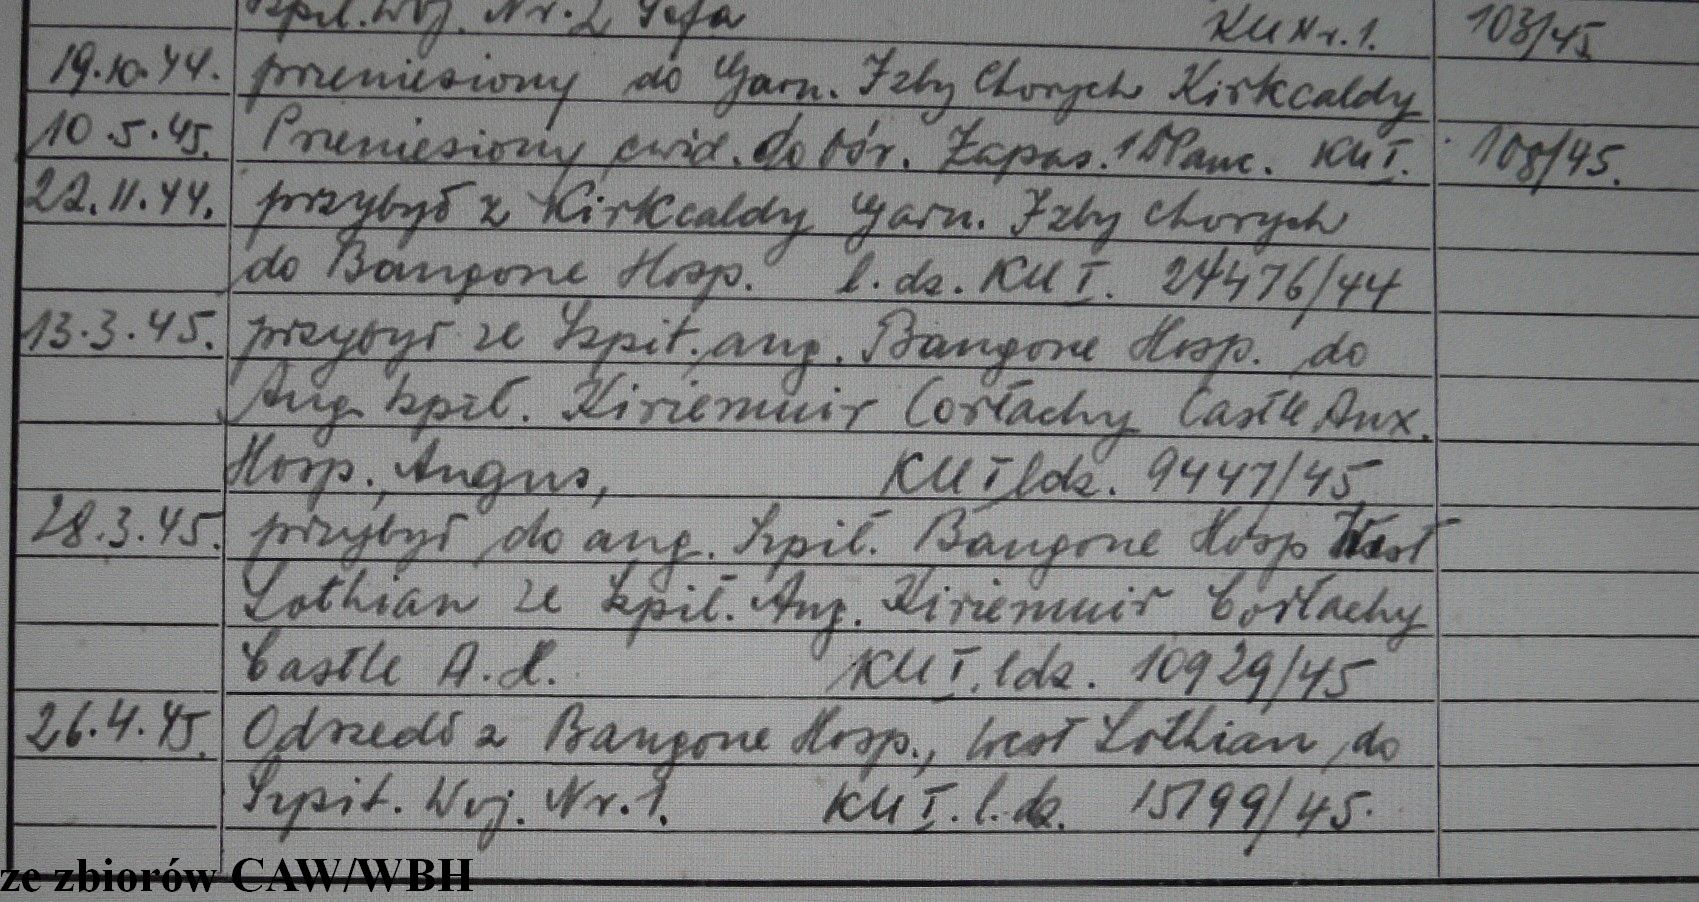 Szpit. Woj. Nr. 2 KU Nr. 1. 103/45
19.10.44. przeniesiony do Garn. Izby Chorych Kirkcaldy
10.5.45. Przeniesiony ewid. do Ośr. Zapas. 1 DPanc. KU I. 108/45.
22.11.44. przybył z Kirkcaldy Garn. Izby Chorych
do Bangone Hosp. l. dz. KU I. 24476/44
13.3.45. przybył ze Szpit. ang. Bangone Hosp. do
Ang. szpit. Kiriemuir Cortachy Castle Aux.
Hosp., Angus, KU I ldz. 9447/45
28.3.45. przybył do ang. Szpit. Bangone Hosp West
Lothian ze szpit. Ang. Kiriemuir Cortachy
Castle A.H. KU I. ldz. 10929/45
26.4.45. Odszedł z Bangone Hosp., West Lothian do
Szpit. Woj. Nr. 1. KU I. l.dz. 15799/45.
ze zbiorów CAW/WBH